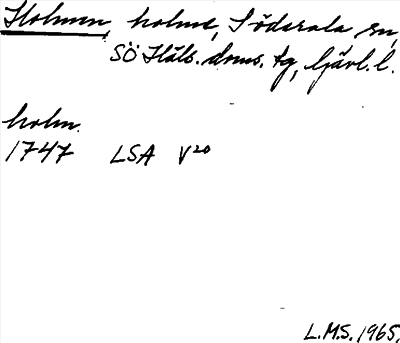 Holmen, holme, Söderala sn,
SÖ Häls. doms. tg, Gävl. l.
holm.
1747 LSA V20
L.M.S. 1965.